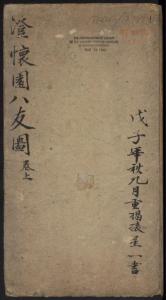 澄懷園八友圖
卷上
戊子年秋九月重揭裱
書